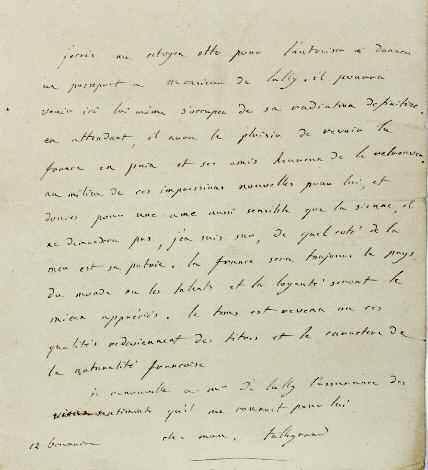 j'ecris au citoyen otto pour l'autoriser a donner
un passeport a monsieur de lally. il pourra
venir ici lui même s'occuper de sa radiation definitive.
en attendant, il aura le plaisir de revoir la
france en paix et ses amis heureux de le retrouver.
au milieu de ces impressions nouvelles pour lui, et
douces pour une ame aussi sensible que la sienne, il
ne demandera pas, j'en suis sur, de quel coté de la
mer est sa patrie. la france sera toujours le pays
du monde ou les talents et la loyauté seront le
mieux appréciés. le tems est revenu ou ces
qualités redeviennent des titres et le caractere de
la nationalité françoise
je renouvelle a mr de lally l'assurance des
sentiments qu'il me connait pour lui.
12 brumaire ch. mau. talleyrand